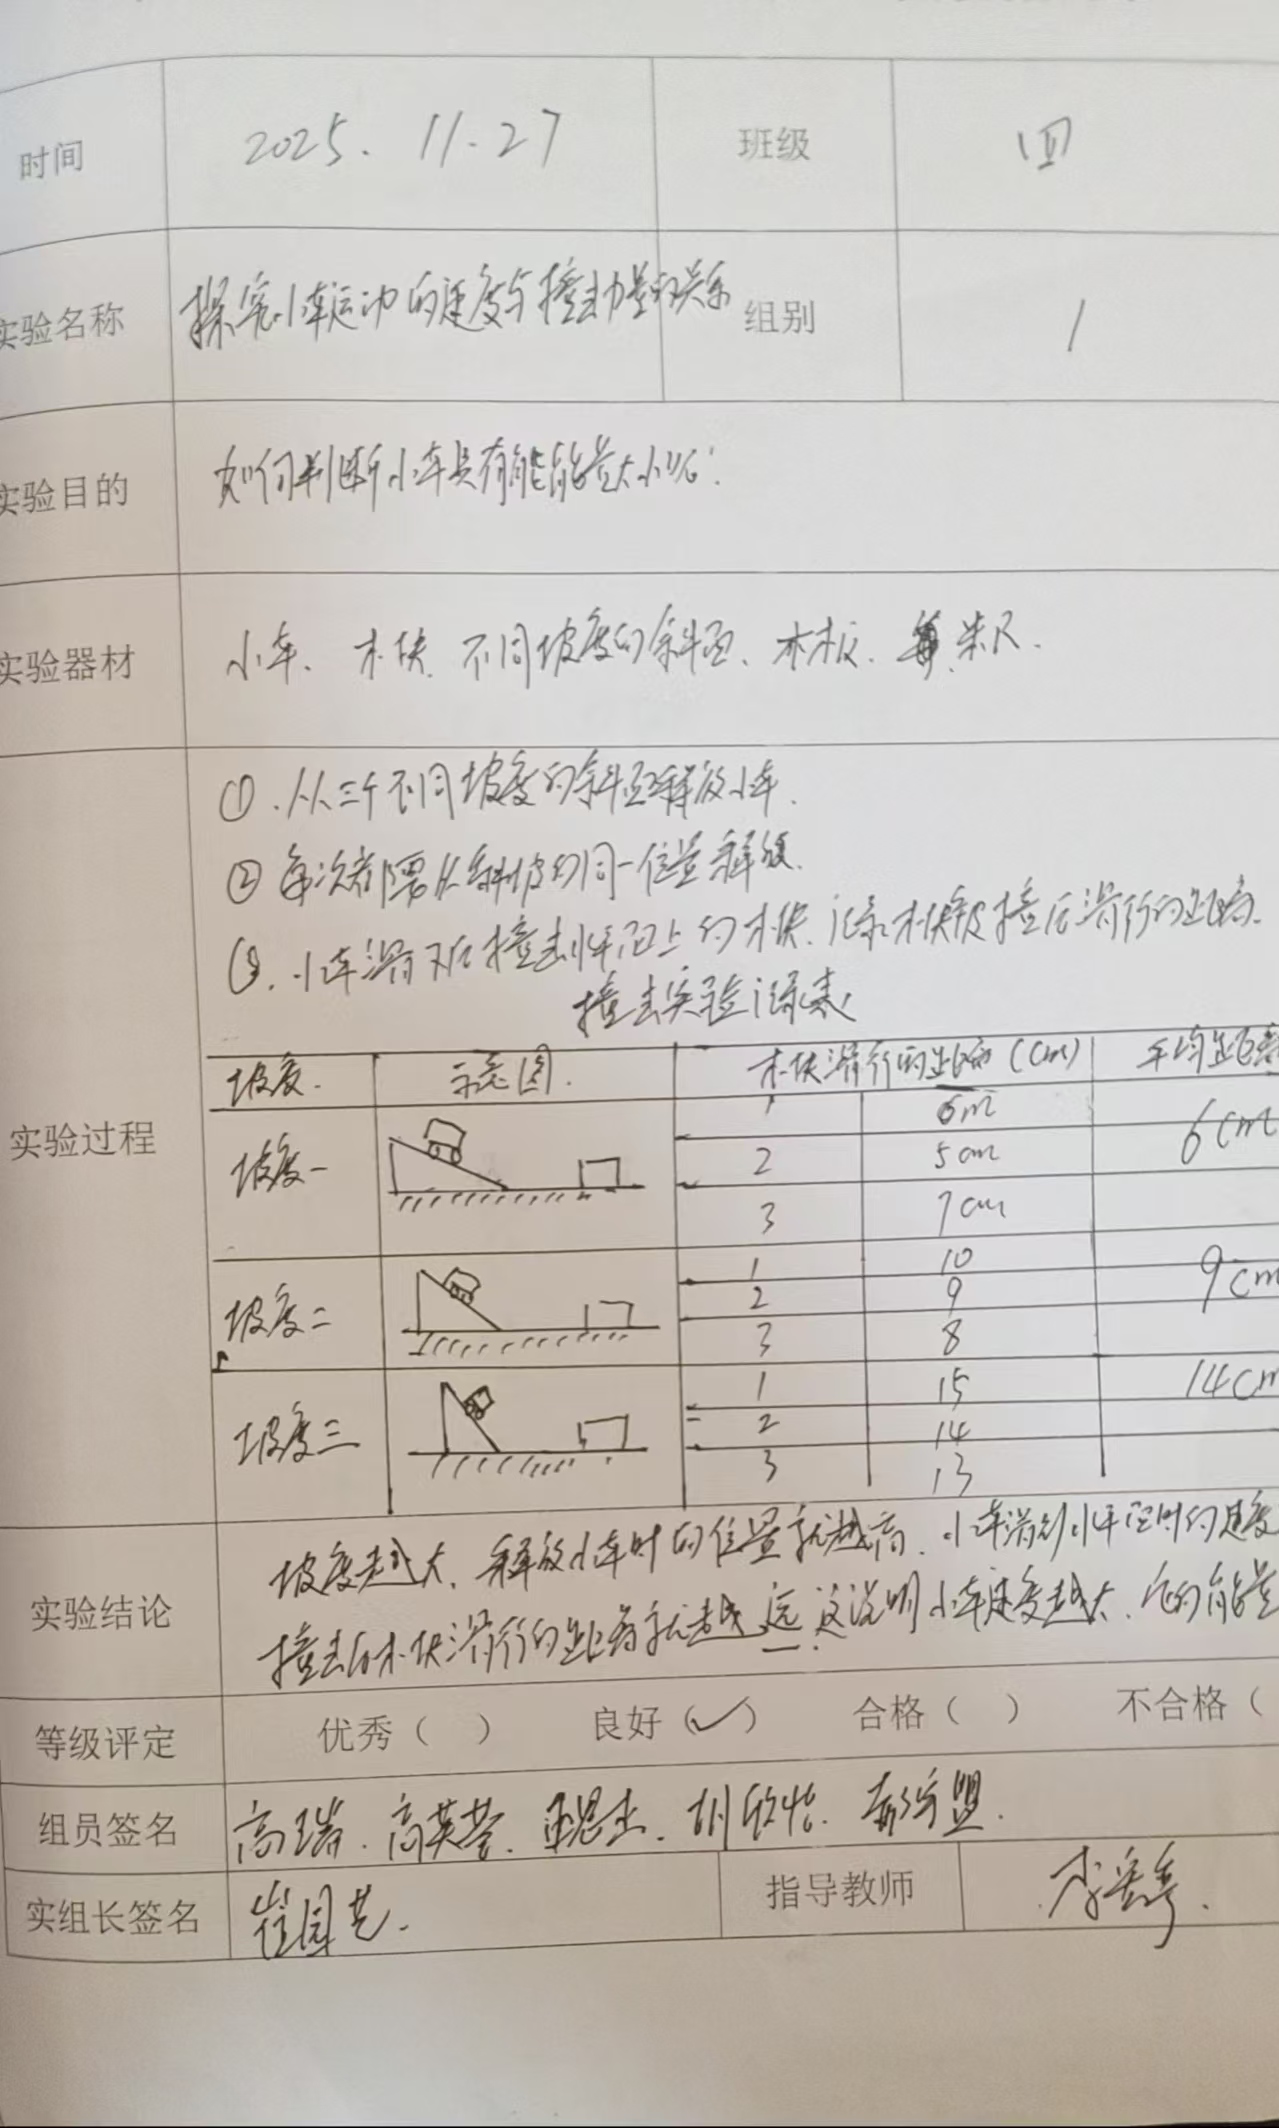 时间 2025. 11.27 班级 四
实验名称 探究小车运动的速度与撞击力量的关系 组别 1
实验目的 如何判断小车具有能能量大小呢?
实验器材 小车、木块、不同坡度的斜面、木板、米尺.
①.从三个不同坡度的斜面释放小车.
②每次都需从斜坡的同一位置释放.
③.小车滑下后撞击水平面上的木块.记录木块被撞后滑行的距离.
撞击实验记录表
实验过程
坡度. 示意图. 木块滑行的距离(cm) 平均距离
坡度一 1 6m 6cm
2 5cm
3 7cm
坡度二 1 10 9cm
2 9
3 8
坡度三 1 15 14cm
2 14
3 13
实验结论 坡度越大、释放小车时的位置就越高、小车滑到水平面时的速度
撞击后木块滑行的距离就越远.这说明小车速度越大、它的能量
等级评定 优秀( ) 良好(✓) 合格( ) 不合格(
组员签名 高瑞.高英莹.
实组长签名 指导教师